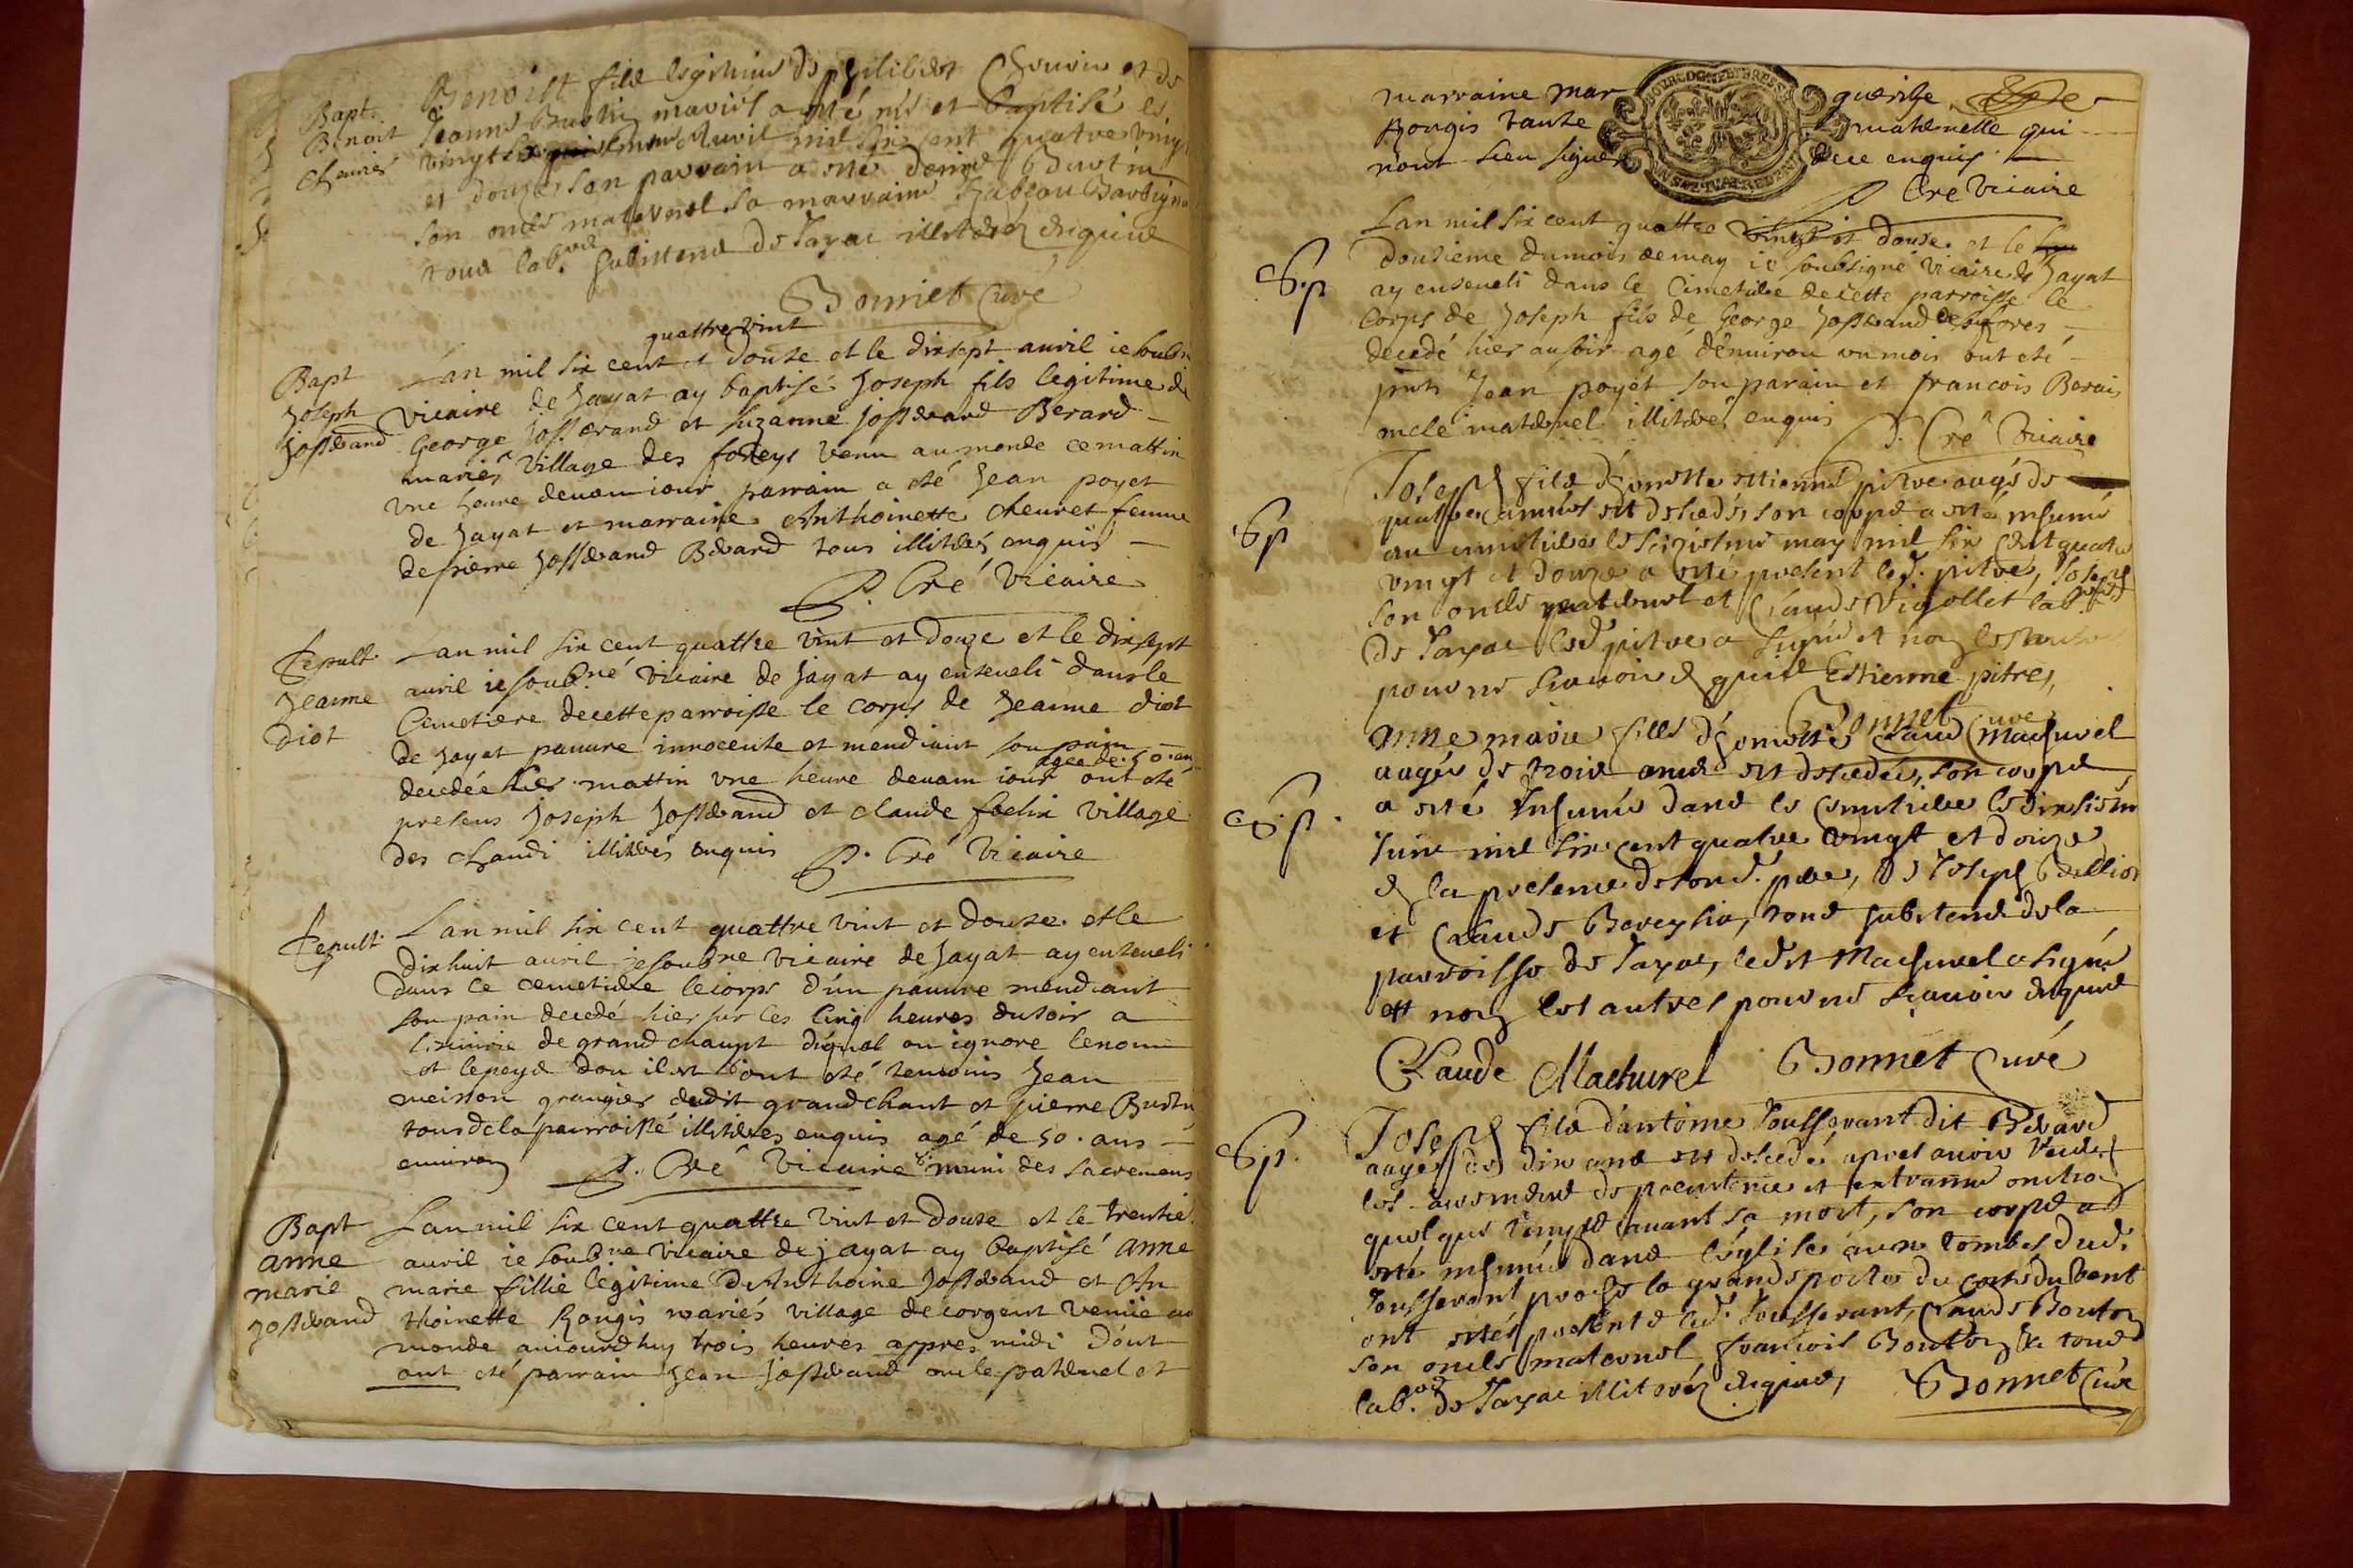 Bapt.
Benoit
Benoist fils legitime de philibert Chevrier et de
Jeanne mariés a esté né et Baptisé
vingt Auril mil six cent quatre vingt
et douze son parrain a esté Denis
son oncle maternel sa marraine
tous lab.rs habittans de Jayac illiterez enquis
Bonnet Curé
quattre vint
Bapt
Joseph
Josserand
L'an mil six cent et douse et le dixsept auril ie soub
Vicaire de Jayat ay baptisé Joseph fils legitime de
George Josserand et suzanne josserand Berard
mariés Village des foreys venu au monde ce mattin
vne heure deuam iour parrain a eté Jean poyet
de Jayat et marraine Anthoinette cheuret femme
de pierre Josserand Berard tous illiterés enquis
P. Cré Vicaire
Sepult.
Jeanne
diot
L'an mil six cent quattre vint et douze et le dixsept
auril ie soubné Vicaire de Jayat ay enseueli dans le
Cemetiere de cette parroisse le corps de Jeanne diot
de Jayat pauure innocente et mendiant son pain
agée de 50. an
decedée hier mattin vne heure deuam iour ont eté
presens Joseph Josserand et claude foelix Village
des chaudi illiterés enquis P. Cré Vicaire
Sepult.
L'an mil six cent quattre vint et douse et le
dixhuit auril ie soubne Vicaire de Jayat ay enseueli
dans le cemetiere le corps d'un pauure mendiant
son pain decedé hier sur les cinq heures du soir a
de grand champt duquel on ignore le nom
et le peys dou il est ont eté temoins Jean
meisson grangier dudit grandchant et pierre
tous de la parroisse illiteres enquis agé de 50. ans
enuiron P. Cré Vicaire muni des sacremens
Bapt
anne
marie
josserand
L'an mil six cent quattre vint et douse et le trentie
auril ie soubne Vicaire de jayat ay baptisé anne
marie fillie legitime de Anthoine Josserand et An
thoinette Rougis mariés village de corgent venue au
monde auiourdhuy trois heures appres midi Dont
ont eté parrain Jean Josserand oncle paternel et
marraine mar guerite
Rougis tante maternelle qui
n'ont sceu signer de ce enquis
P Cré Vicaire
Sp
L'an mil six cent quattre vingt et douse et le
Dousieme du mois de may ie soubsigné Vicaire de Jayat
ay enseueli dans le Cimetiere de cette parroisse le
Corps de Joseph fils de George Josserand des fores
decedé hier au soir agé d'enuiron vn mois ont eté
pnts Jean poyet son parain et francois Berais
oncle maternel illiteres enquis
P. Cré Vicaire
Sp
Joseph fils d'honeste estienne pitre aagé de
quatre années est decedé, son corps a esté inhumé
au cimetiere le may mil six cent quatre
vingt et douze a esté present led. pitre, Joseph
son oncle maternel et Claude Vigollet lab.
de Jayac led pitre a signé et non les autres
pour ne scauoir enquis Estienne pitre,
Bonnet Curé
Sp.
Anne marie fille d'honeste Claude Machurel
aagée de trois ans est decedée, son corps
a esté Inhumé dans le cemetiere le
Juin mil six cent quatre vingt et douze
en la presence de sond. pere, de Joseph
et Claude tous habitans de la
parroisse de Jayac, ledit Machurel a signé
et non les autres pour ne scauoir enquis
Claude Machurel Bonnet Curé
Sp.
Joseph fils d'antoine Jousserant dit Berard
aagé de dix ans est decedé apres auoir receu
les sacrements de poenitence et extreme onction
quelque temps auant sa mort, son corps a
esté inhumé dans l'eglise au tombes dud.
Jousserant proche la grande porte du costé du vent
ont estés present led. Jousserant, Claude Bouton
son oncle maternel francois Bouton tous
lab. de Jayac illiterés enquis, Bonnet Curé